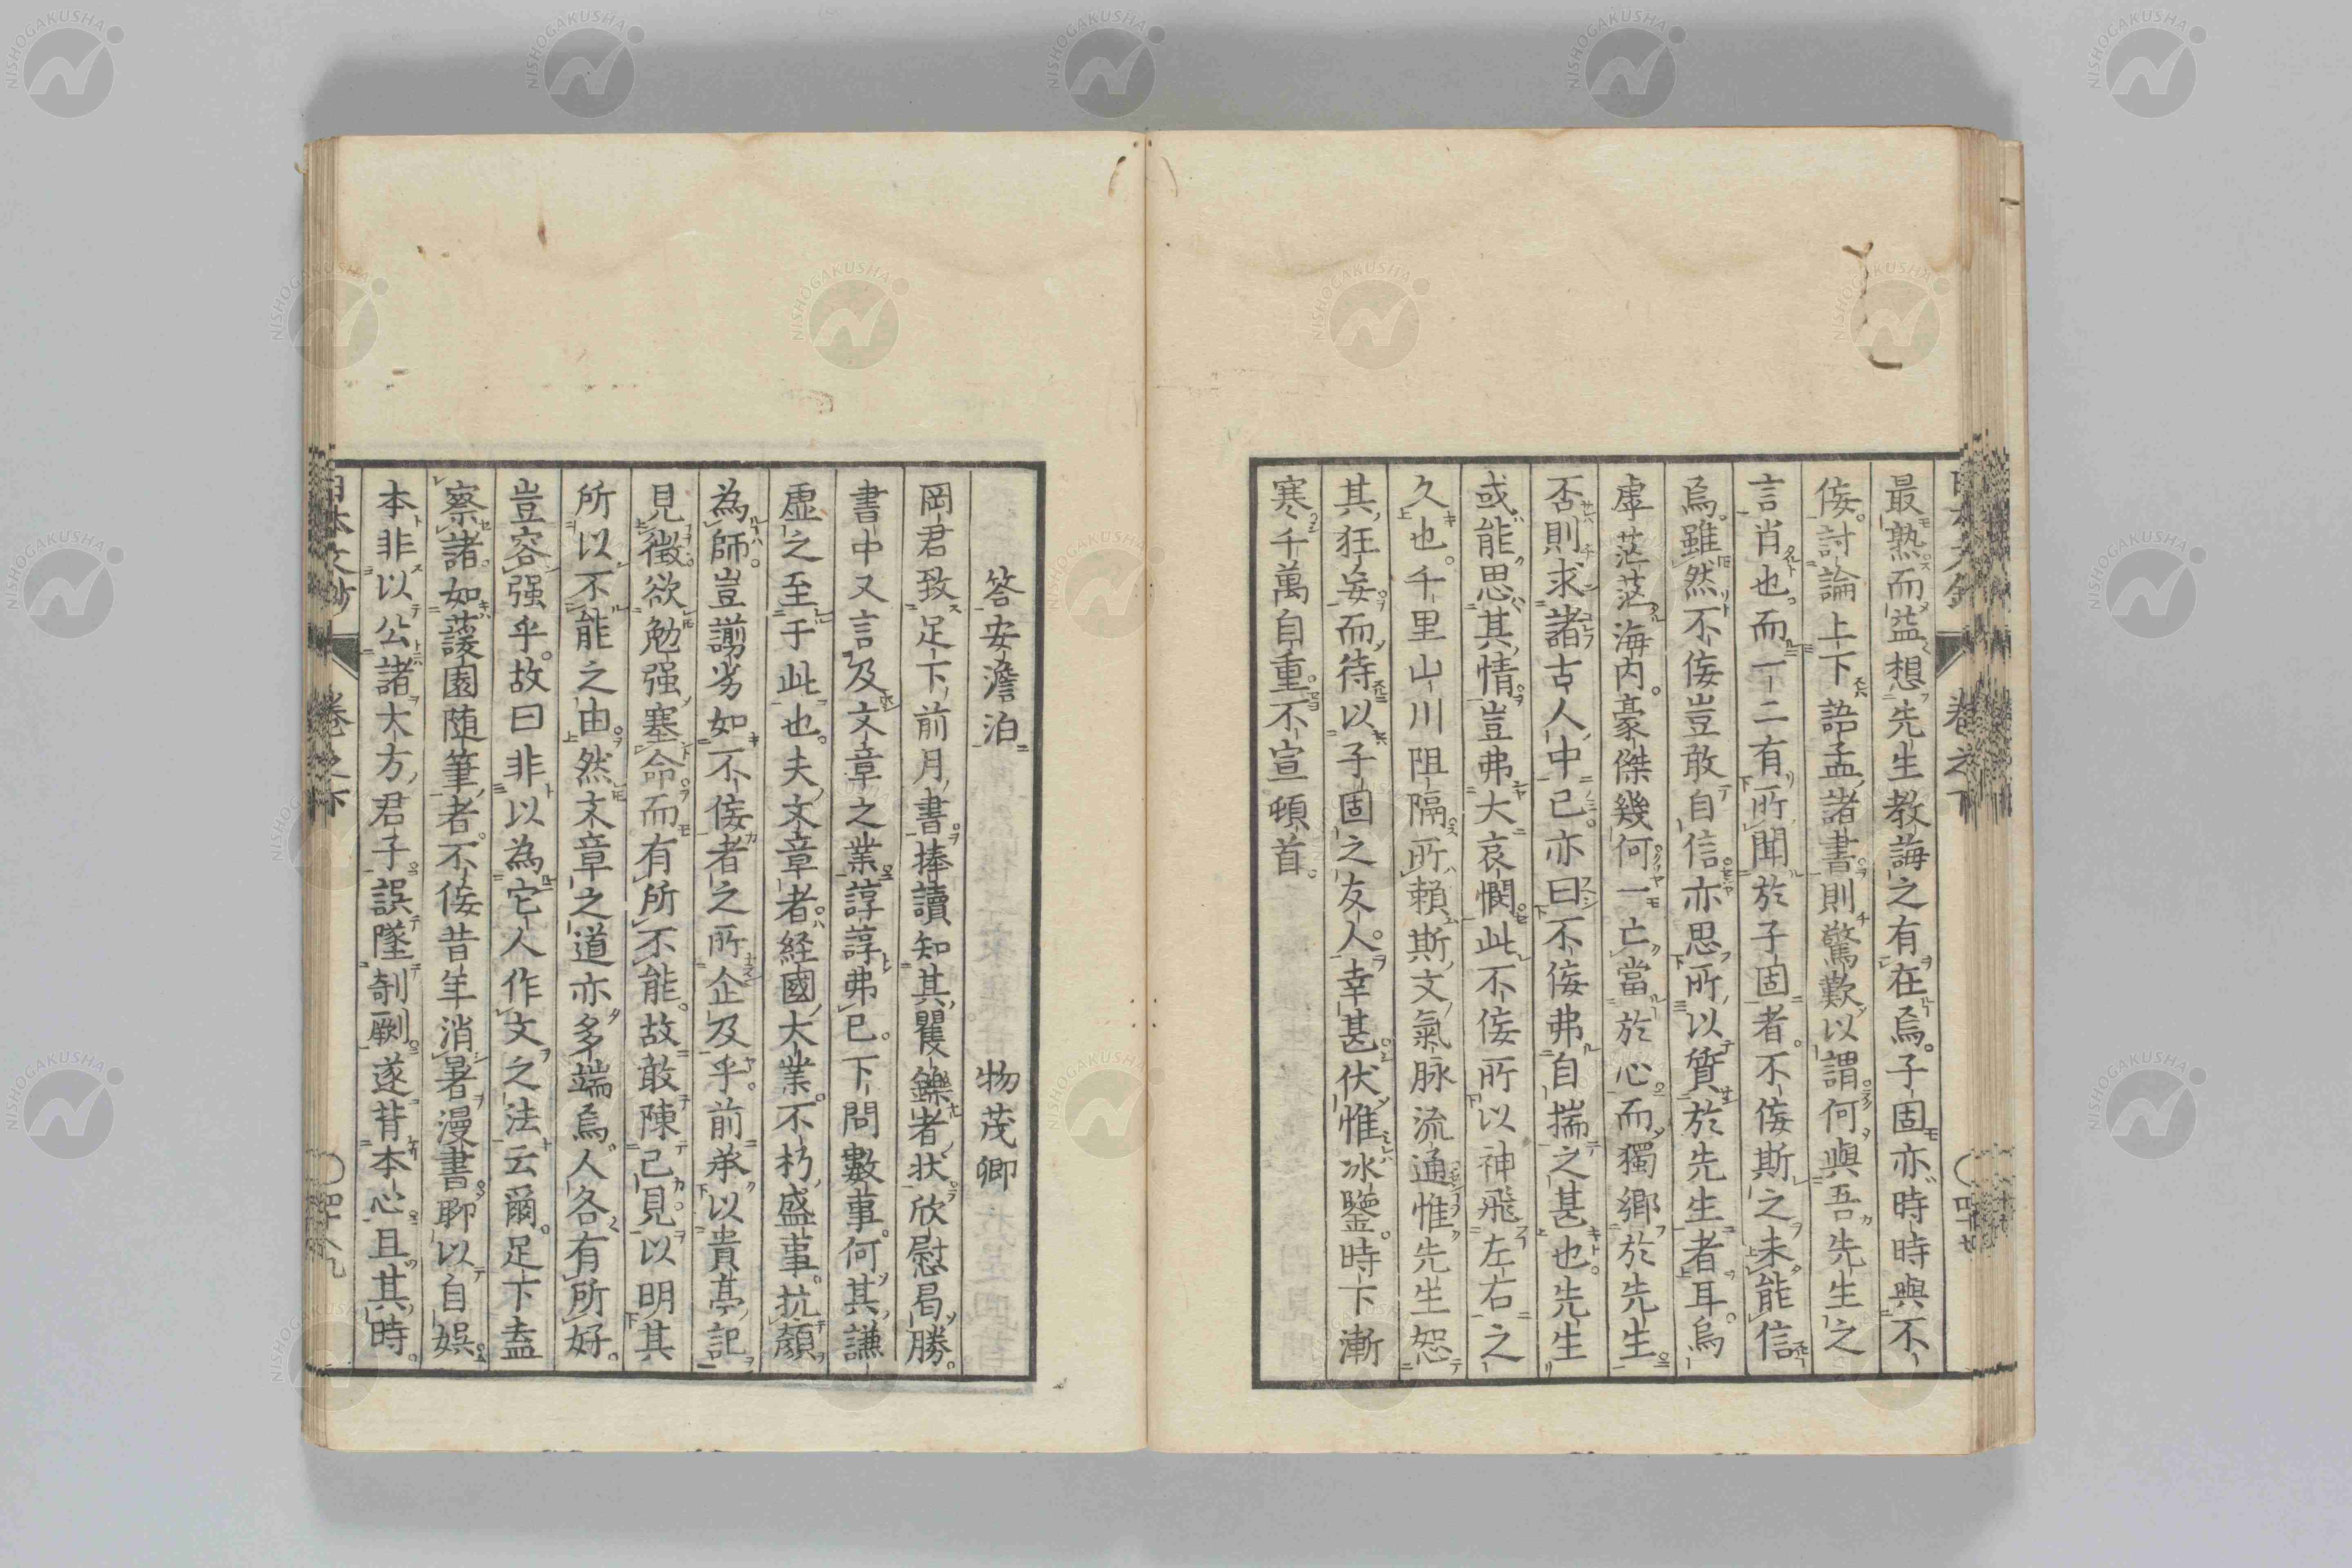 最熟而益想先生教誨之有在焉子固亦時時與不
侫討論上下語孟諸書則驚歎以謂何與吾先生之
言肖也而一二有所聞於子固者不侫斯之未能信
焉雖然不侫豈敢自信亦思所以質於先生者耳烏
虖茫茫海内豪傑幾何一亡當於心而獨鄉於先生
否則求諸古人中已亦曰不侫弗自揣之甚也先生
或能思其情豈弗大哀憫此不侫所以神飛左右之
久也千里山川阻隔所賴斯文氣脉流通惟先生恕
其狂妄而待以子固之友人幸甚伏惟冰鑒時下漸
寒千萬自重不宣頓首
答安澹泊 物茂卿
岡君致足下前月書捧讀知其矍鑠者狀欣慰曷勝
書中又言及文章之業諄諄弗已下問數事何其謙
虛之至于此也夫文章者経國大業不朽盛事抗顏
為師豈謭劣如不侫者之所企及乎前承以貴亭記
見徵欲勉强塞命而有所不能故敢陳己見以明其
所以不能之由然文章之道亦多端焉人各有所好
豈容强乎故曰非以為它人作文之法云爾足下盍
察諸如蘐園随筆者不侫昔年消暑漫書聊以自娯
本非以公諸大方君子誤墜剞劂遂背本心且其時
日本文鈔 卷之下